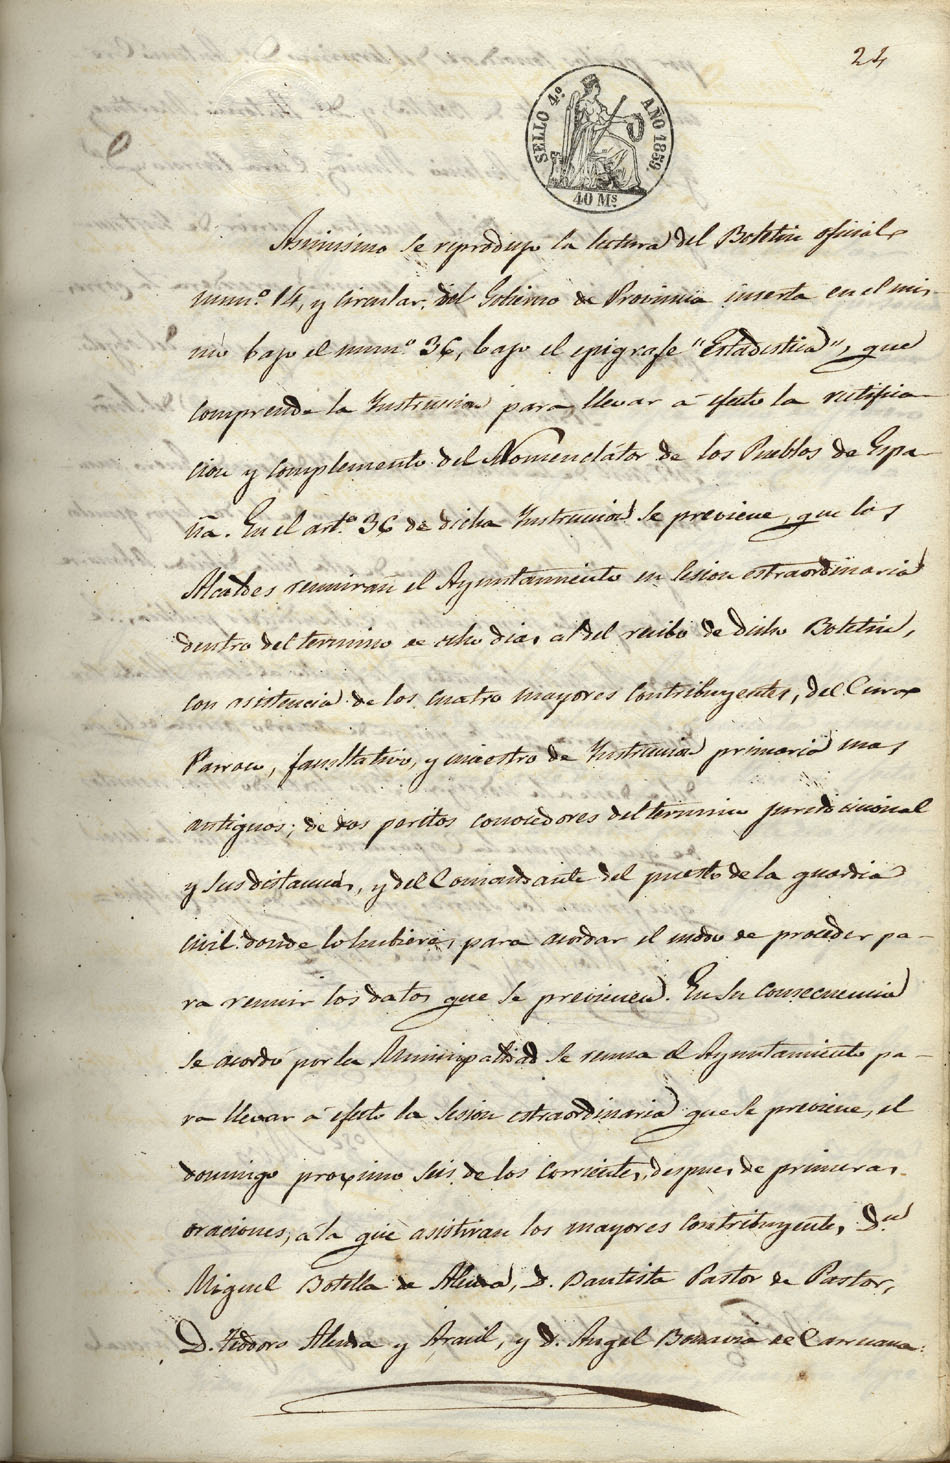 24
SELLO 4º AÑO 1859.
40 Ms
Asimismo se reprodujo la lectura del Boletin oficial
numº 14, y circular del Gobierno de Provincia inserta en el mis-
mo bajo el numº 36, bajo el epigrafe "Estadistica", que
comprende la Instruccion para llevar á efecto la rectifica-
cion y complemento del Nomenclátor de los Pueblos de Espa-
ña. En el artº 36 de dicha Instruccion se previene, que los
Alcaldes reuniran el Ayuntamiento en sesion estraordinaria
dentro del termino de ocho dias al del recibo de dicho Boletin,
con asistencia de los cuatro mayores contribuyentes, del Cura
Parroco, facultativo, y maestro de Instruccion primaria mas
antiguos; de dos peritos conocedores del termino juridiccional
y sus distancias, y del Comandante del puesto de la guardia
civil donde lo hubiere, para acordar el modo de proceder pa-
ra reunir los datos que se previenen. En su consecuencia
se acordó por la Municipalidad se reuna el Ayuntamiento pa-
ra llevar á efecto la sesion estraordinaria que se previene, el
domingo proximo seis de los corrientes, despues de primeras
oraciones, á la que asistiran los mayores contribuyentes, Dn
Miguel Botella de , D. Bautista Pastor de Pastor,
D. Teodoro y , y D. Angel de Carruana